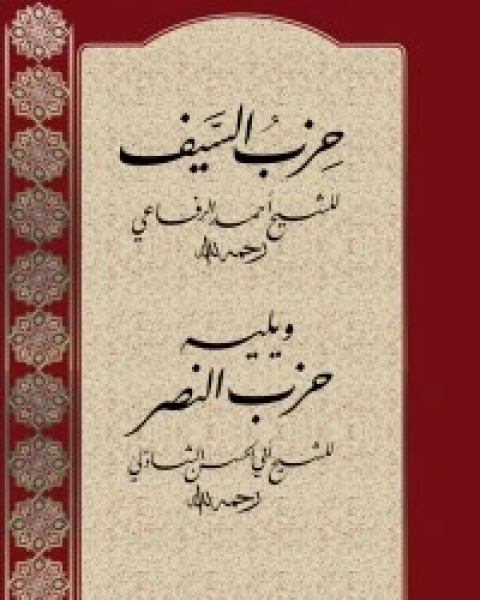 حِزبُ السَّيف
للشيخ أحمد الرفاعي
رحمه الله
ويليه
حزب النصر
للشيخ أبي الحسن الشاذلي
رحمه الله